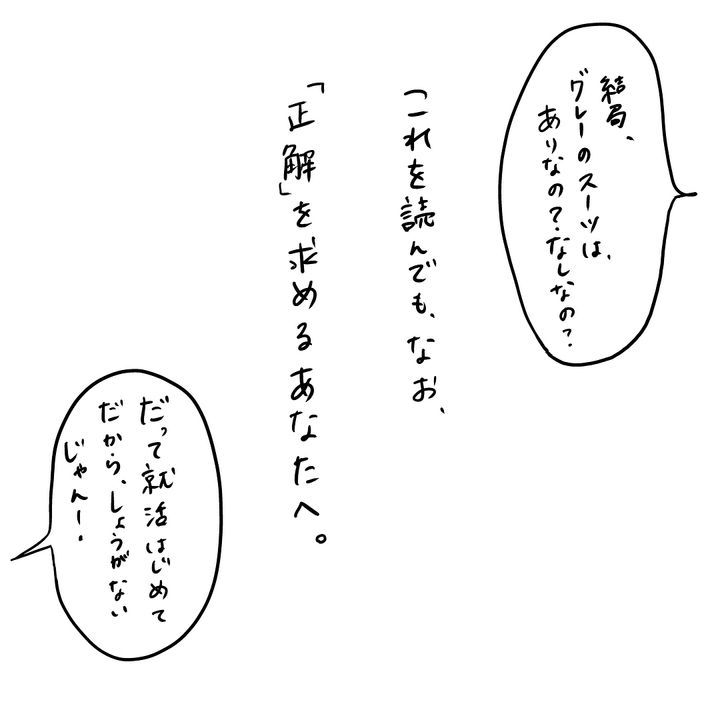 結局、
グレーのスーツは、
ありなの?なしなの?
これを読んでも、なお、
「正解」を求めるあなたへ。
だって就活はじめて
だから、しょうがない
じゃんー!